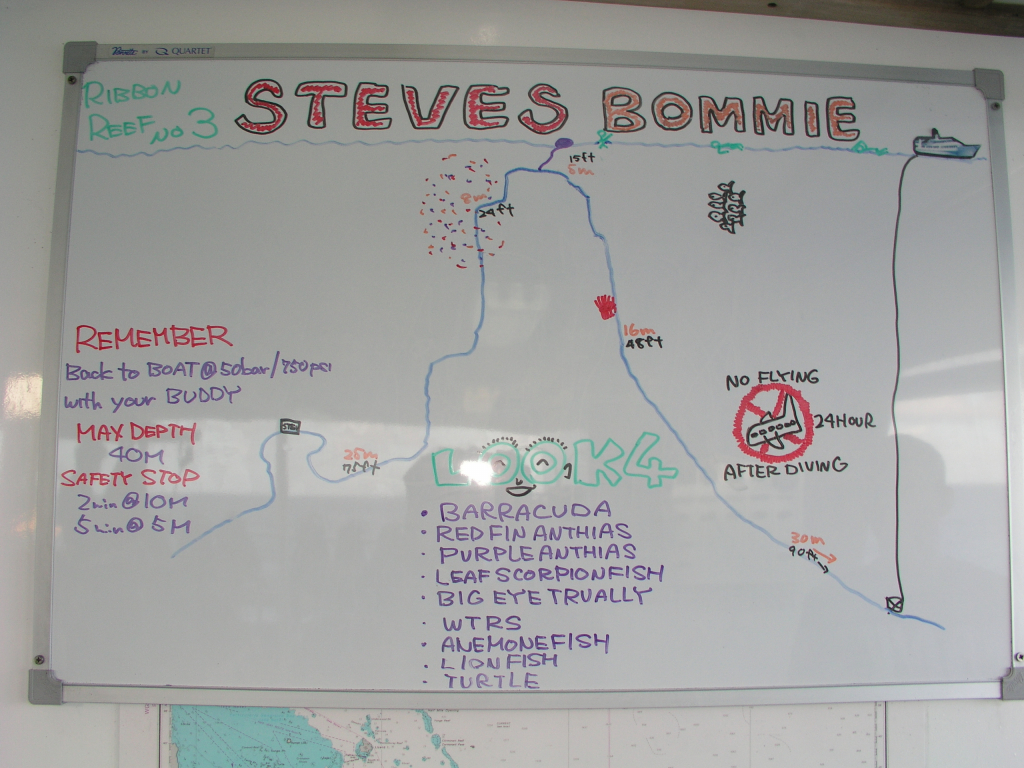 QUARTET
RIBBON
REEF NO 3
STEVES BOMMIE
15ft
5m
8m
24ft
16m
48ft
REMEMBER
Back to BOAT @ 50bar/750psi
with your BUDDY
MAX DEPTH
40M
SAFETY STOP
2min @ 10M
5min @ 5M
25m
75ft
NO FLYING
24HOUR
AFTER DIVING
LOOK4
• BARRACUDA
• RED FIN ANTHIAS
• PURPLE ANTHIAS
• LEAF SCORPIONFISH
• BIG EYE TRUALLY
• WTRS
• ANEMONEFISH
• LIONFISH
• TURTLE
30m
90ft